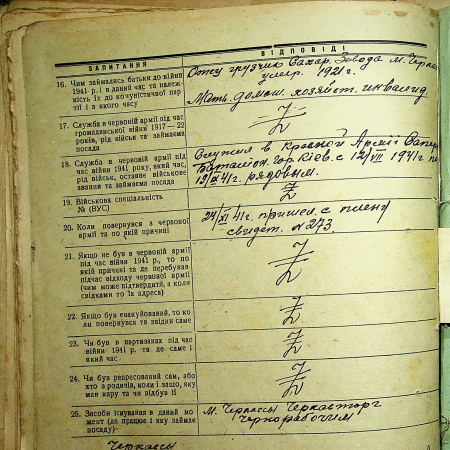 ЗАПИТАННЯ
ВІДПОВІДІ
16. Чим займались батьки до війни
1941 р. і в даний час та належ-
ність їх до комуністичної пар-
тії і з якого часу
Отец грузчик Сахар. Завода м. Черкас
умер. 1921 г.
Мать домаш. хозяйст. инвалид
17. Служба в червоній армії під час
громадянської війни 1917—22
років, рід військ та займаєма
посада
Z
18. Служба в червоній армії під
час війни 1941 року, який час,
рід військ, останнє військове
звання та займаєма посада
Служил в красной Армии Сапер
Баталіон гор Кіев. с 12/VII 1941 г. по
19/IX 41 г. рядовым.
19. Військова спеціяльність
№ (ВУС)
Z
20. Коли повернувся з червоної
армії та по якій причині
24/XI 41 г. пришел с плену
свидет. № 273
21. Якщо не був в червоній армії
під час війни 1941 р., то по
якій причині та де перебував
підчас відходу червоної армії
(чим може підтвердити, а коли
свідками то їх адреса)
Z
22. Якщо був евакуйований, то ко
ли повернувся та звідки саме
Z
23. Чи був в партизанах під час
війни 1941 р. та де саме і
який час
Z
24. Чи був репресований сам, або
хто з родичів, коли і защо, яку
мав кару та чи відбув її
Z
25. Засоби існування в даний мо
мент (де працює і яку займає
посаду)-
м. Черкассы Черкасторг
Чернорабочим
Черкассы